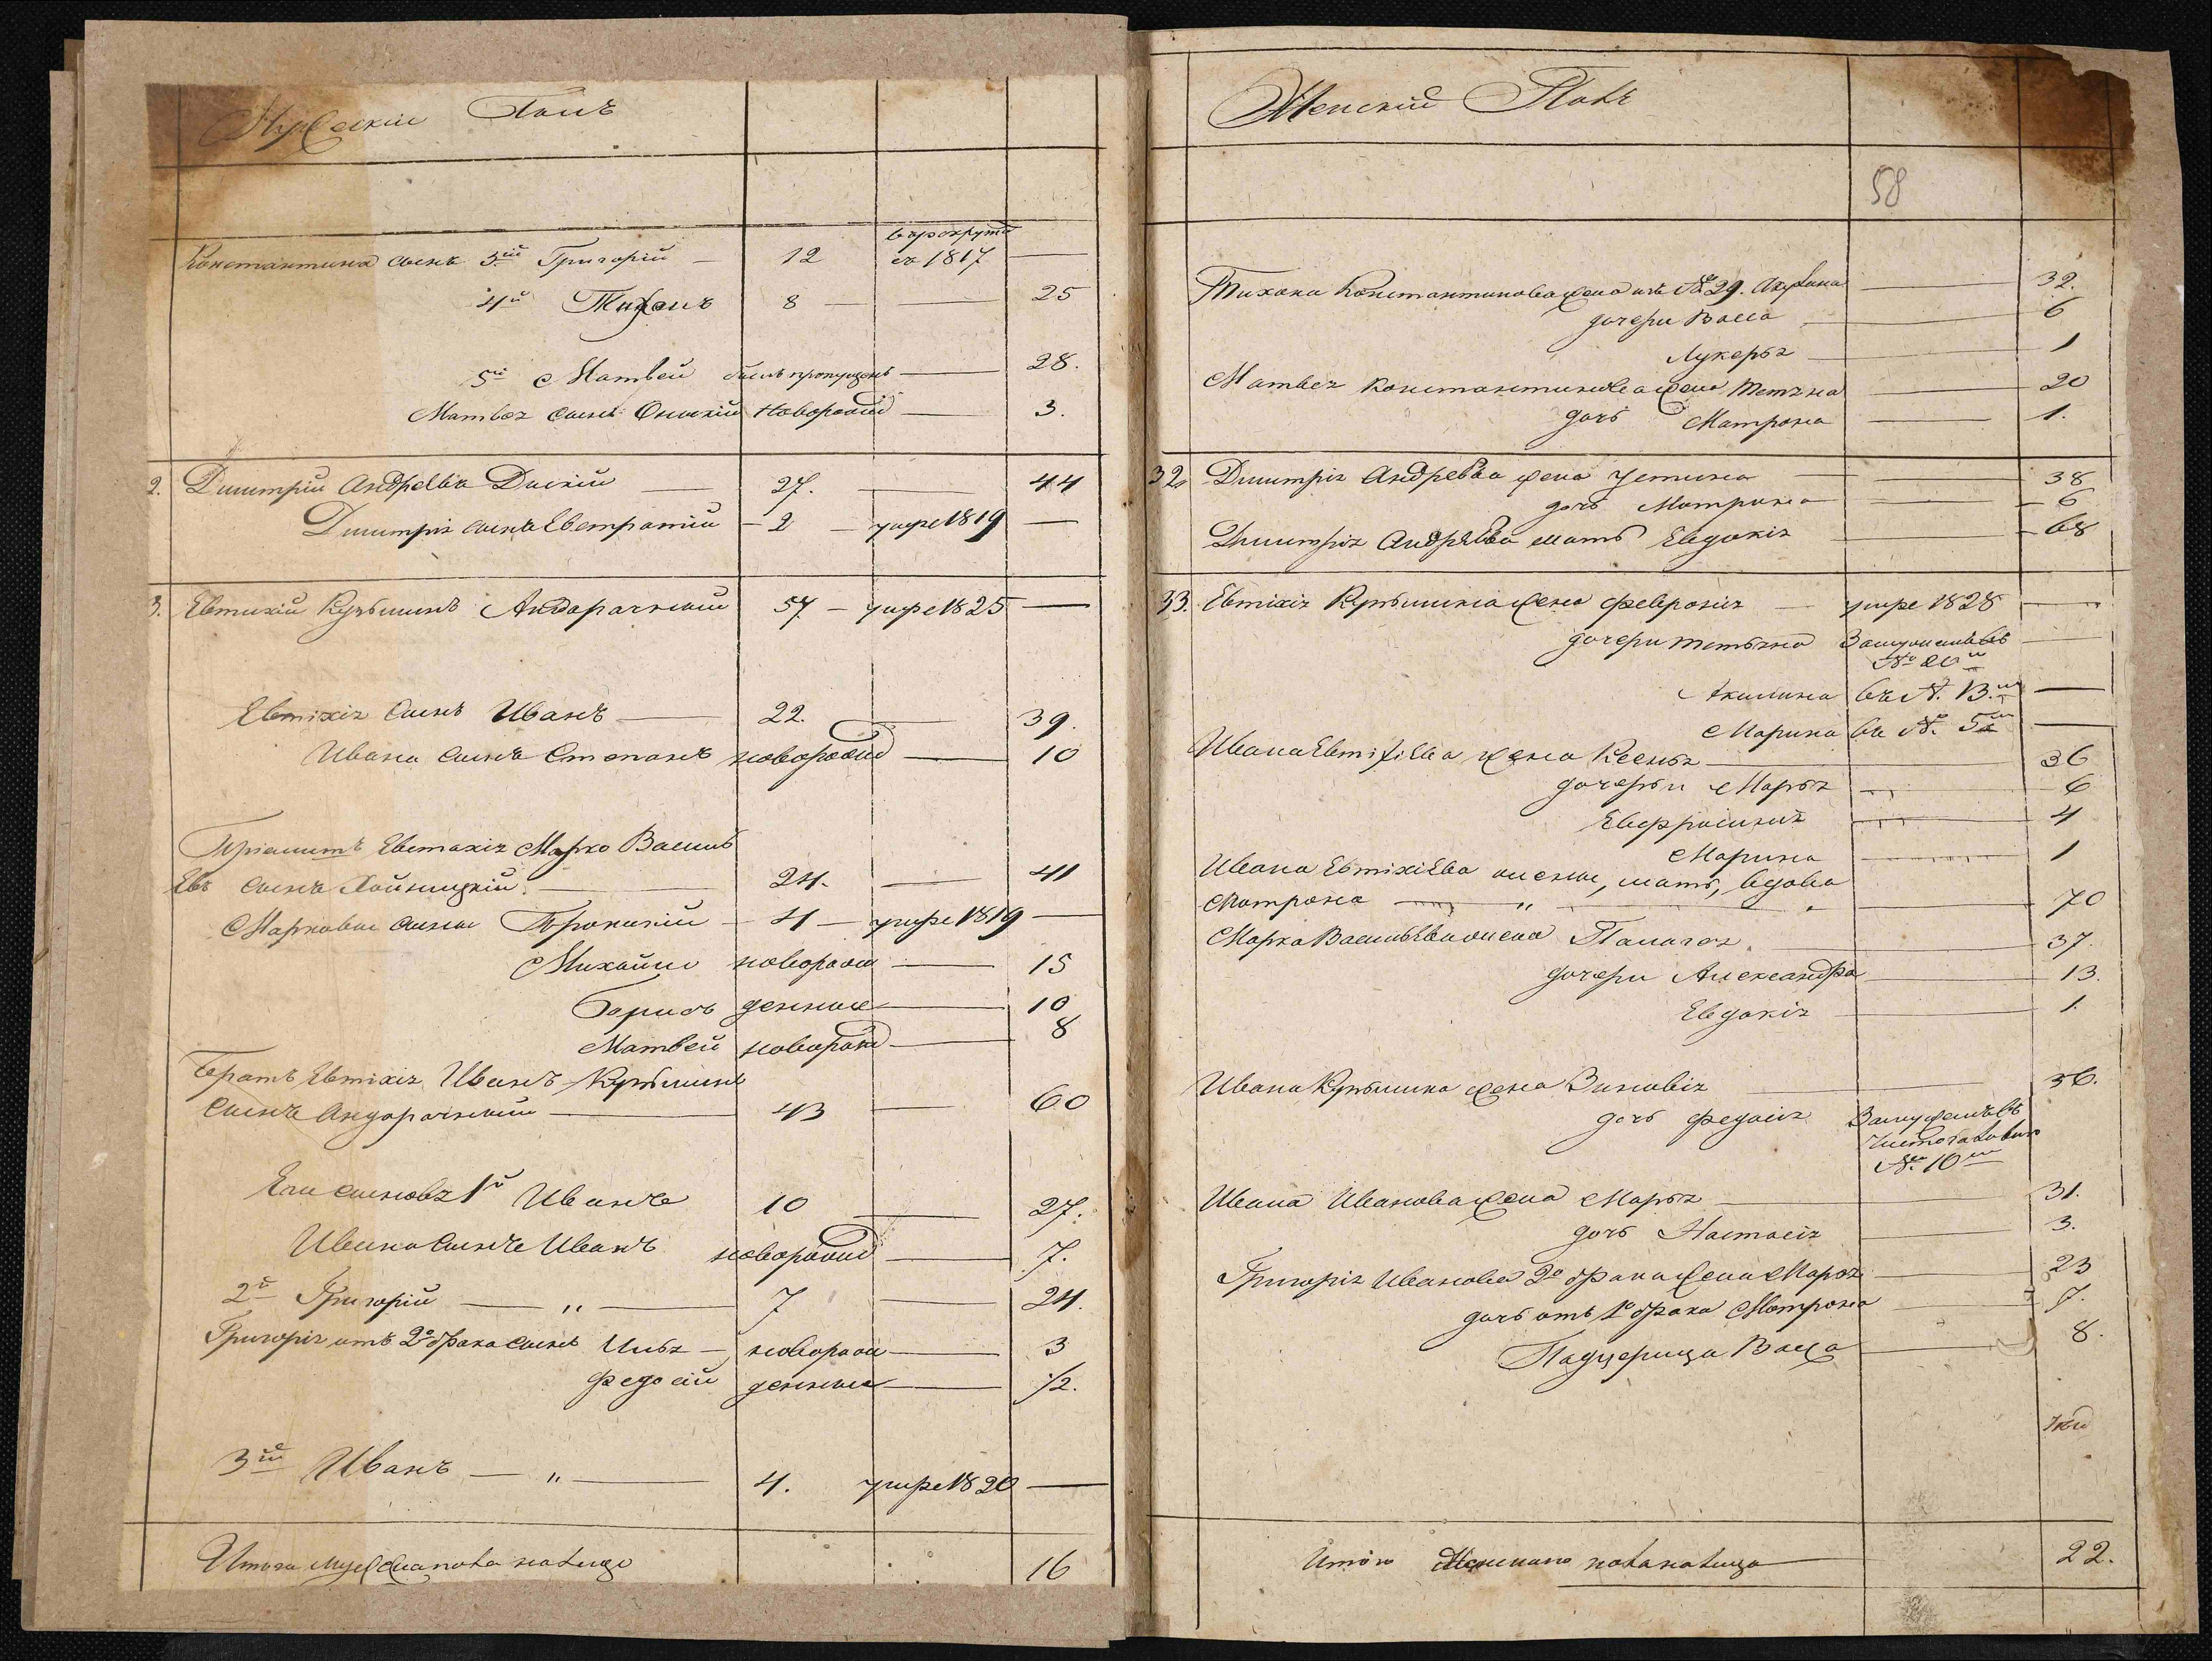 Мужескій Полъ
въ рекруты
Константина сынъ 3ій Григорій — 12 съ 1817 —
4й Тихонъ 8 — 25
5й Матвей былъ пропущенъ — 28.
Матвея сынъ новорожд — 3.
2. Дмитрій Андреевъ 27. — 44
Дмитрія сынъ Евстратій — 2 — умре 1819 —
3. Евтихій Кузьминъ 57 — умре 1825 —
Евтихія сынъ Иванъ — 22. — 39.
Ивана сынъ Степанъ новорожд — 10
Евтихія Марко Василь
евъ сынъ — 24. — 41
Марковы сыны Прокопій — 4 — умре 1819 —
Михайло новорож — 15
Борисъ денные — 10
Матвей новорожд — 8
Братъ Евтихія Иванъ Кузьминъ
сынъ — 43 — 60
Его сыновья 1й Иванъ 10 — 27.
Ивана сынъ Иванъ новорожд — 7.
2й Григорій — " — 7 — 24.
Григорія отъ 2о брака сынъ Илья — новорож — 3
Федосій денные — 1/2.
3ій Иванъ — " — 4. умре 1820 —
Итого мужеска пола налицо 16
Женскій Полъ
58
Тихона Константинова жена изъ № 29. Акулина — 32.
дочери Васса — 6
Лукерья — 1
Матвея Константинова жена Тетяна — 20
дочь Матрона — 1.
32. Дмитрія Андреева жена Устина — 38
дочь Матрона — 6
Дмитрія Андреева мать Евдокія — 68
33. Евтихія Кузьмина жена Февронія — умре 1828 —
дочери Тетьяна Замужемъ въ —
№ 20м
Акилина въ №. 13.м —
Марина въ №. 5м —
Ивана Евтихіева жена Ксенья — 36
дочерьи Марья — 6
Евфросинія — 4
Марина — 1
Ивана Евтихіева жены, мать, вдова
Матрона — " — 70
Марка Васильева жена Палагея — 37.
дочери Александра — 13.
Евдокія — 1.
Ивана Кузьмина жена Зиновія — 56.
дочь Федосія Замужемъ въ
№. 10м
Ивана Иванова жена Марья — 31.
дочь Настасія — 3.
Григорія Иванова 2о брака жена Марья — 23
дочь отъ 1о брака Матрона — 7.
Падчерица Васса — 8.
Итого Женскаго пола налицо 22.